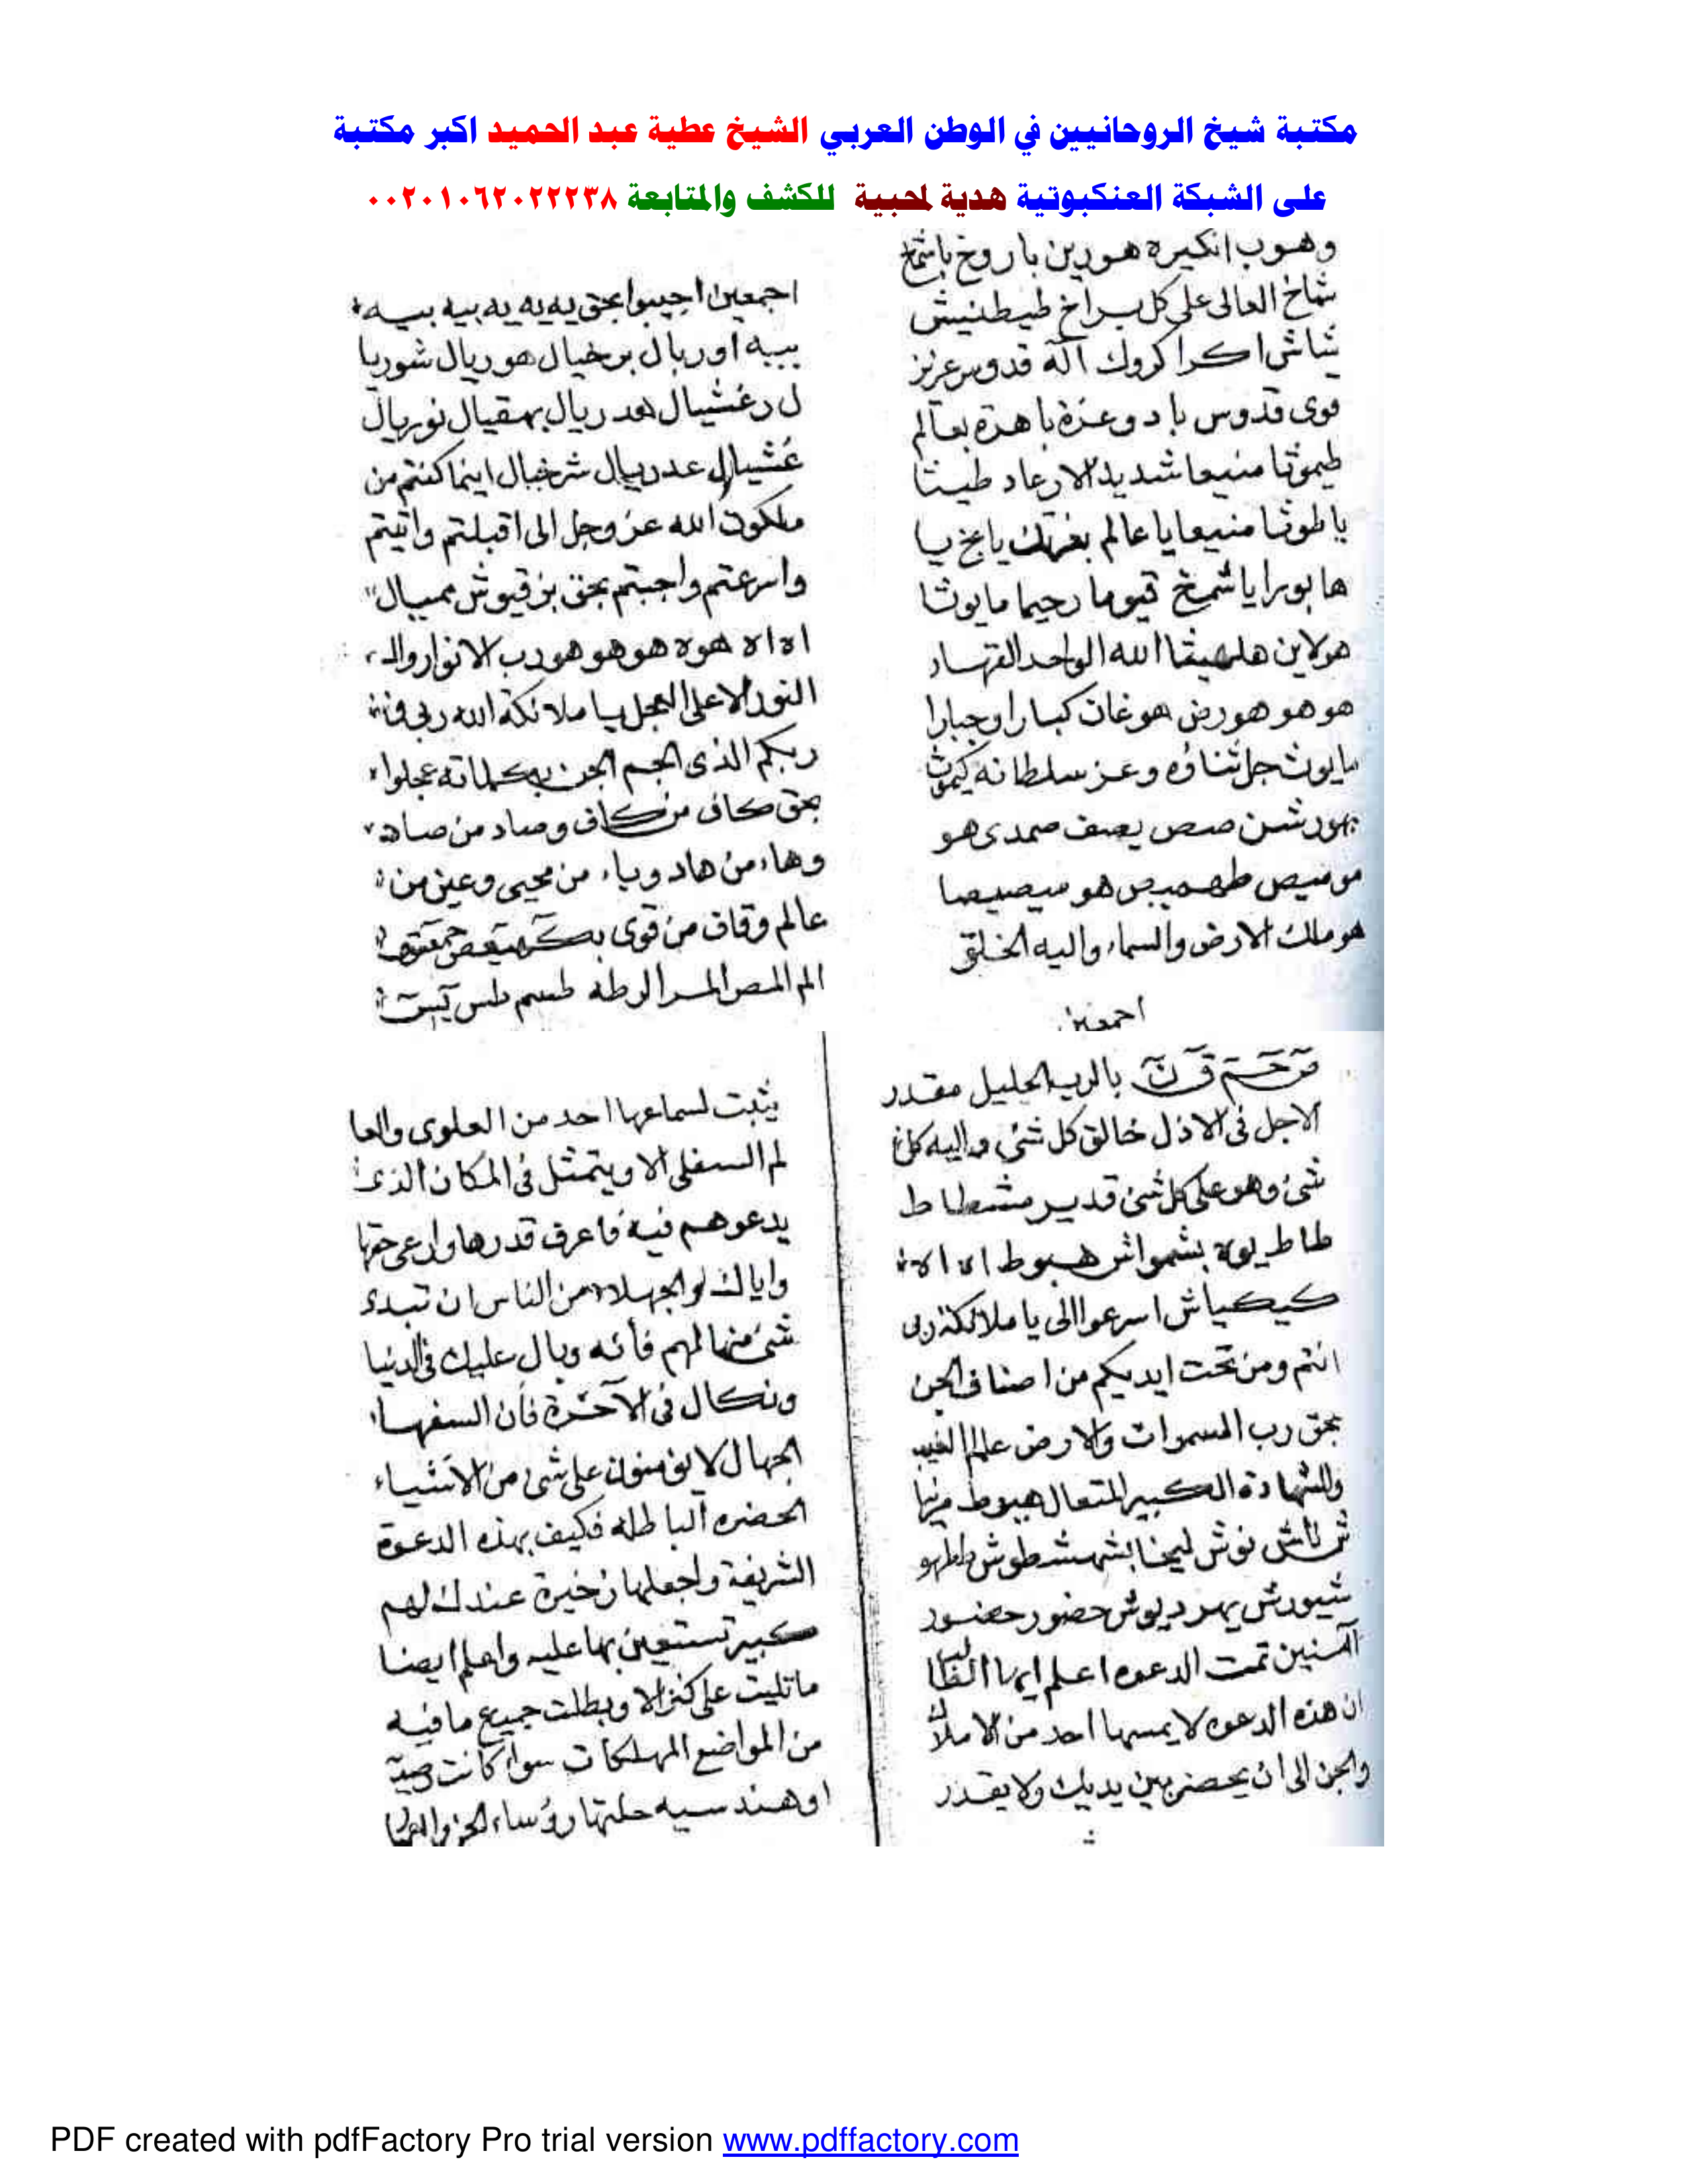 مكتبة شيخ الروحانيين في الوطن العربي الشيخ عطية عبد الحميد اكبر مكتبة
على الشبكة العنكبوتية هدية لمحبية للكشف والمتابعة ٠٠٢٠١٠٦٢٠٢٢٢٣٨
وهوب انكيره هورين باروخ باشماخ
شماخ العالى على كل براخ طيطنيش
شاش اكرا كروك آله قدوس عزيز
قوى قدوس باد وعزة باهرة بعالم
طيموثا منيعا شديد الارعاد طيثا
يا طوثا منيعا يا عالم
ها بورا يا شمخ قيوما رحيما مايوثا
هولاين الله الواحد القهار
هو هو هورض هوغان كبارا وجبارا
مايوث جل ثناؤه وعز سلطانه كيموث
بهورشن صص يصف صمدى هو
هو ميصيصا
هو ملك الارض والسماء واليه الخلق
اجمعين
اجمعين اجيبوا بحق يه يه يه يه بيه بيه
بيبه اوريال برخيال هوريال شوريا
ل دغشيال هدريال بهقيال نوريال
غشيال عدريال شرخيال اينما كنتم من
ملكوت الله عز وجل الى اقبلتم واتيتم
واسرعتم واجبتم بحق بزقيوش مميال
اه اه اه هوه هو هو هو رب الانوار وال
النور الاعلى العجل يا ملائكة الله ربى
ربكم الذى الجم الجن بكلماته عجلوا
بحق كاف من كاف وصاد من صاد
وهاء من هاد وياء من محيى وعين من
عالم وقاف من قوى بكهيعص حمعسق
الم المص المر الر طه طسم طس يس
ص حم ق ن بالرب الجليل مقدر
الاجل فى الازل خالق كل شئ واليه كل
شئ وهو على كل شئ قدير مشطاط
طاطيوه بشمواش هبوط اه اه
كيكياش اسرعوا الى يا ملائكة ربى
انتم ومن تحت ايديكم من اصناف الجن
بحق رب السموات والارض عالم الغيب
والشهادة الكبير المتعال هيوط
نوش ليخا بشهشطوش
شيورش يهرديوش حضور حضور
آمنين تمت الدعوه اعلم ايها الطالب
ان هذه الدعوه لا يمسها احد من الاملاك
والجن الى ان يحضر بين يديك ولا يقدر
يثبت لسماعها احد من العلوى والعا
لم السفلى الا ويتمثل فى المكان الذى
يدعوهم فيه فاعرف قدرها وارعى حقها
واياك والجهلاء من الناس ان تبدى
شئ منها لهم فأنه وبال عليك فى الدنيا
ونكال فى الآخرة فأن السفهاء
الجهال لا يؤمنون على شئ من الاشياء
الحضره الباطله فكيف بهذه الدعوة
الشريفة واجعلها ذخيرة عندك لهم
كبير تستعين بها عليه واعلم ايضا
ما تليت على كنز الا وبطلت جميع ما فيه
من المواضع المهلكات سوا كانت رصديه
او هندسيه حلتها رؤساء الجن
PDF created with pdfFactory Pro trial version www.pdffactory.com